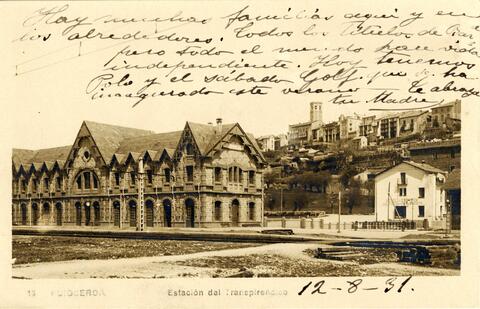 Hay muchas familias aqui y en
los alrededores. Todos los titulos de
pero todo el mundo hace vida
independiente. Hoy tenemos
Polo y el sábado Golf que se ha
inaugurado este verano Te abraza
tu Madre
13 PUIGCERDÁ Estación del Transpirenaico 12-8-31.